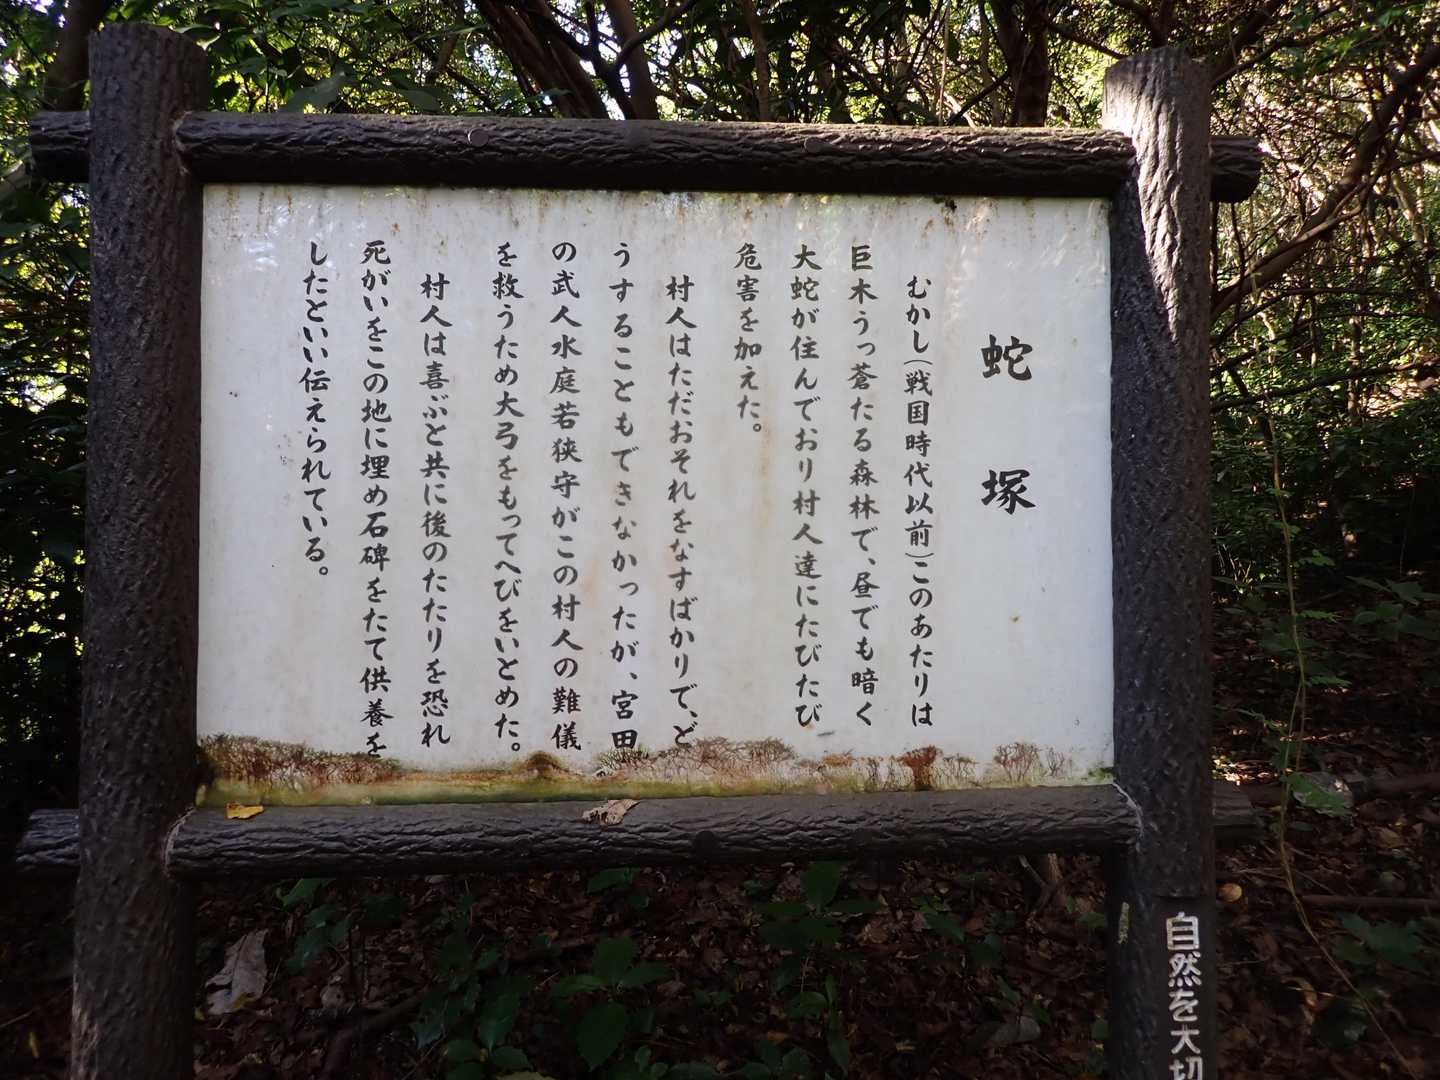 蛇塚
むかし(戦国時代以前)このあたりは
巨木うっ蒼たる森林で、昼でも暗く
大蛇が住んでおり村人達にたびたび
危害を加えた。
村人はただおそれをなすばかりで、ど
うすることもできなかったが、宮田
の武人水庭若狭守がこの村人の難儀
を救うため大弓をもってへびをいとめた。
村人は喜ぶと共に後のたたりを恐れ
死がいをこの地に埋め石碑をたて供養を
したといい伝えられている。
自然を大切